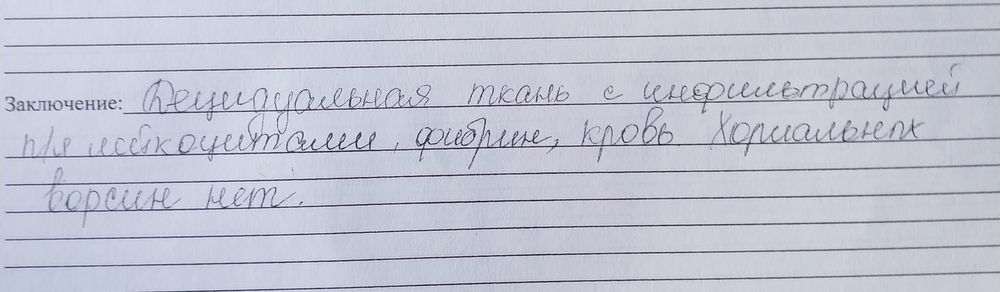 Заключение: Децидуальная ткань с инфильтрацией
п/я лейкоцитами, фибрин, кровь Хориальных
ворсин нет.